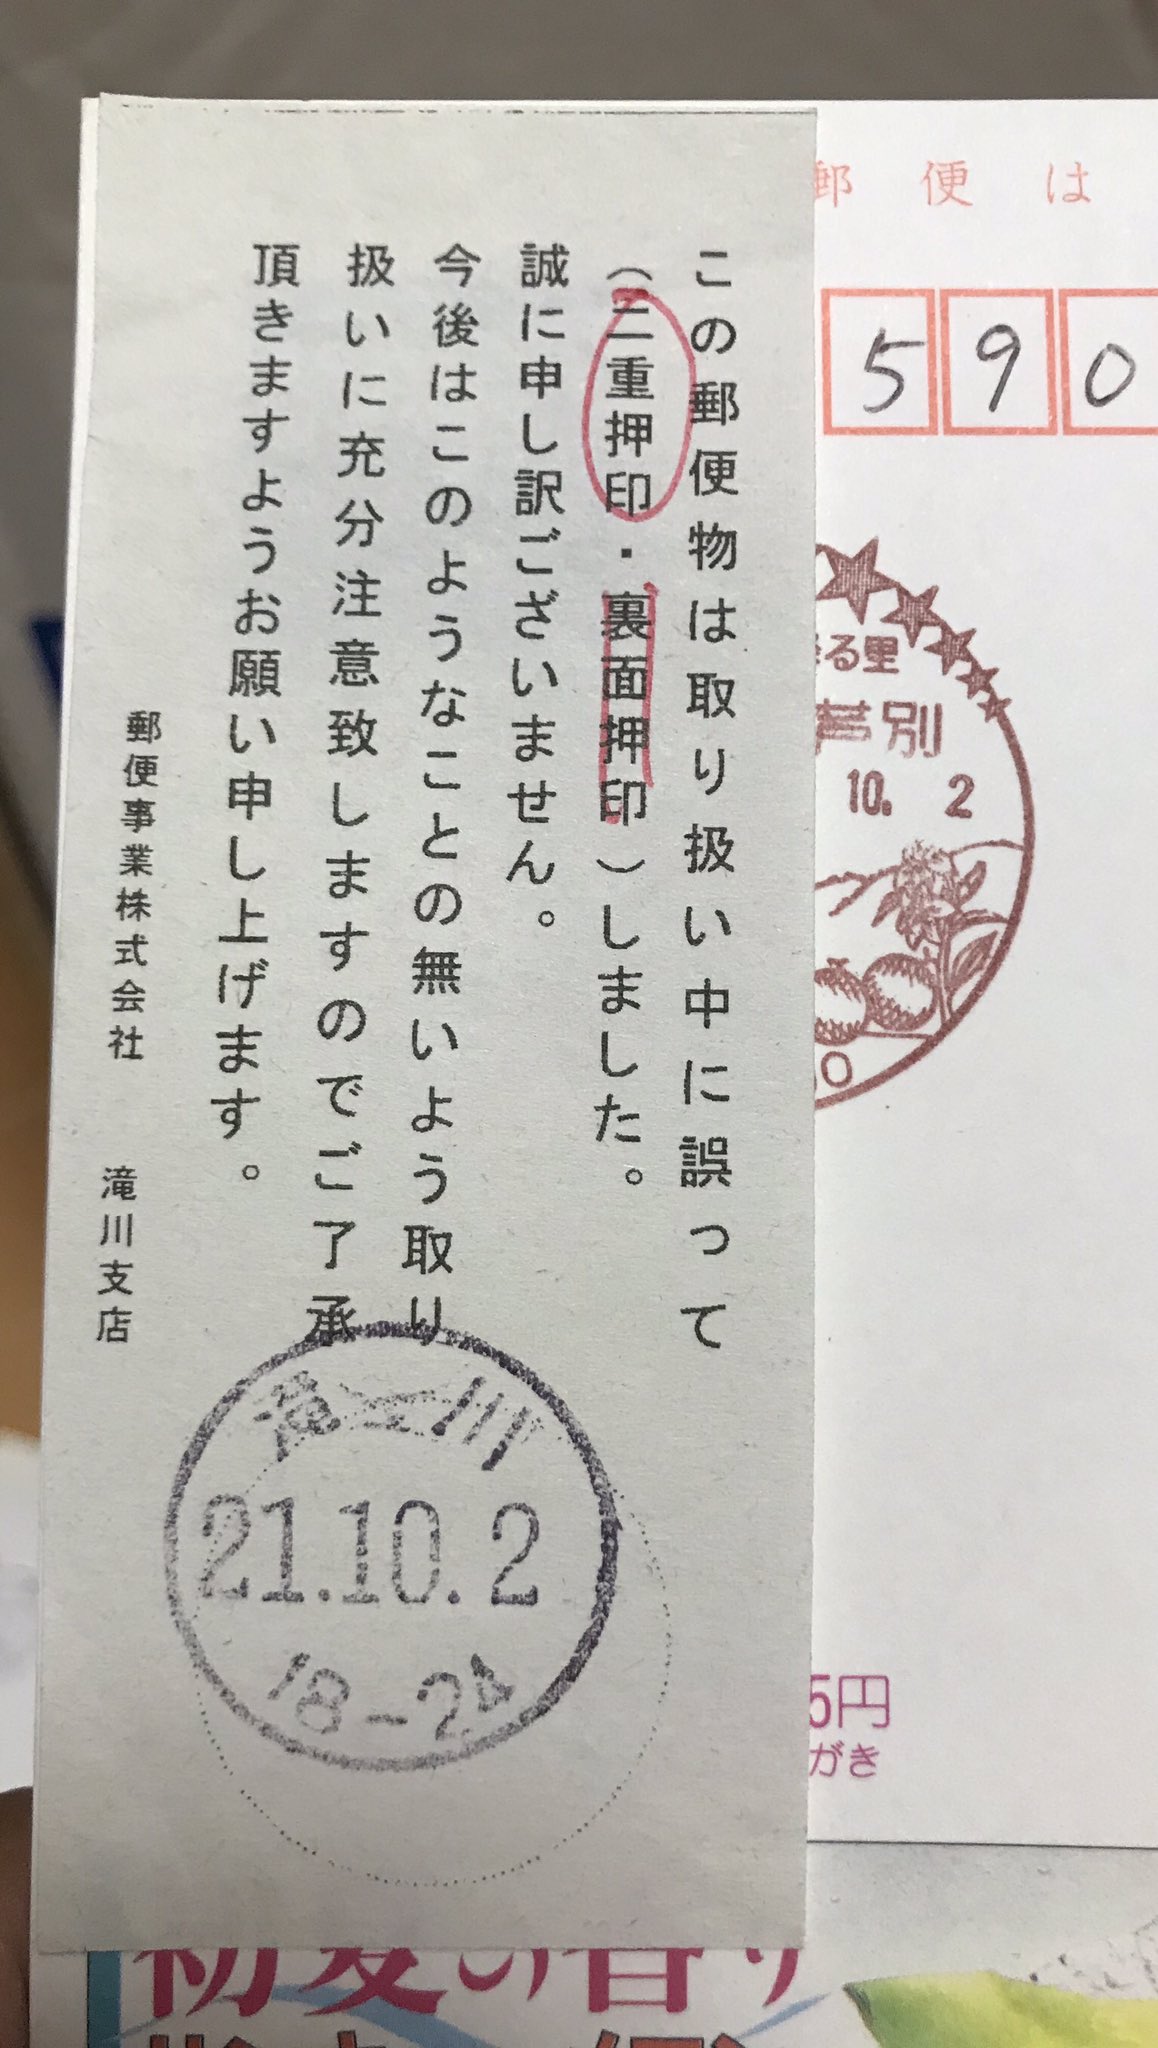 この郵便物は取り扱い中に誤って
（二重押印・裏面押印）しました。
誠に申し訳ございません。
今後はこのようなことの無いよう取り
扱いに充分注意致しますのでご了承
頂きますようお願い申し上げます。
郵便事業株式会社 滝川支店
滝川
21.10.2
18-24
郵便は
590
る里
芦別
10. 2
5円
がき
初夏の香り